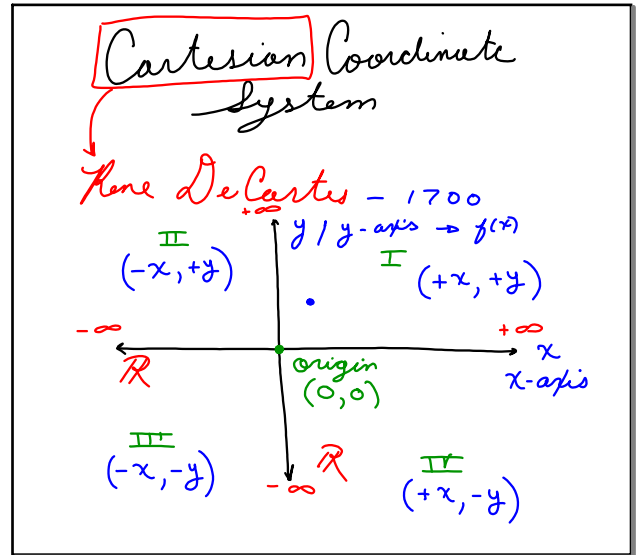 Cartesian Coordinate
System
Rene DeCartes - 1700
+∞
y / y-axis → f(x)
II
I
(-x, +y)
(+x, +y)
-∞
+∞
ℝ
x
x-axis
origin
(0,0)
III
(-x, -y)
ℝ
-∞
IV
(+x, -y)